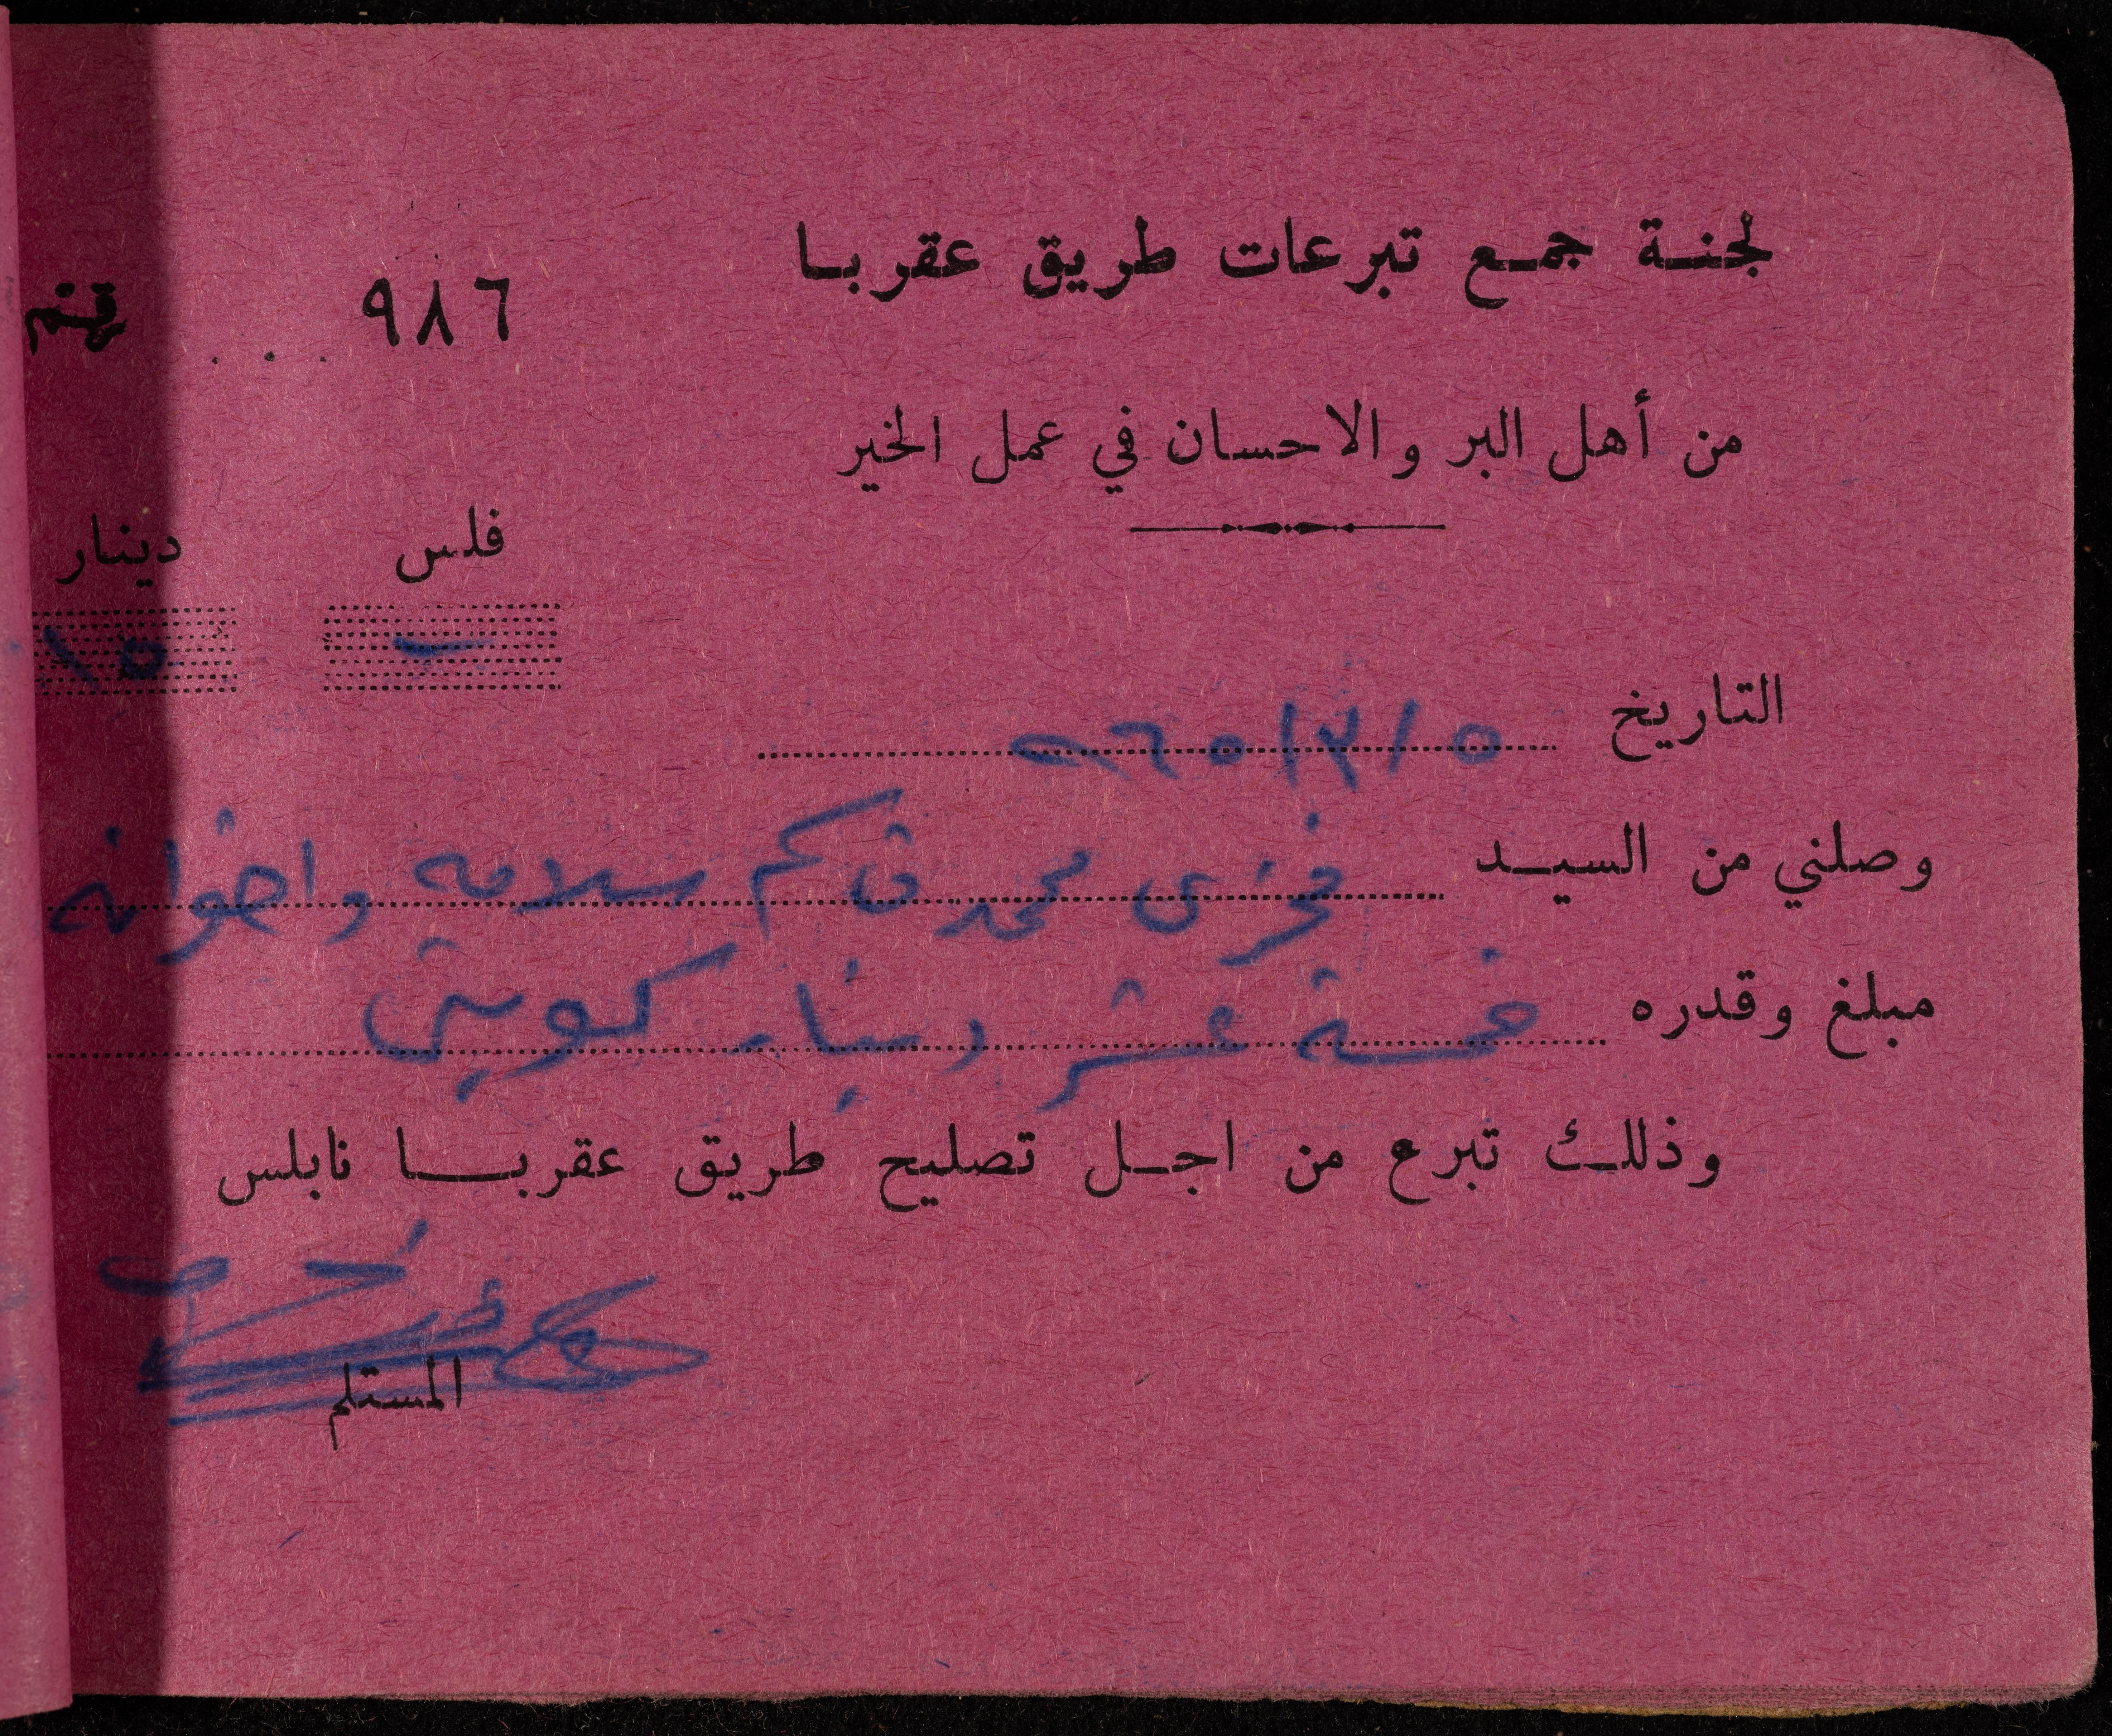 لجنة جمع تبرعات طريق عقربا
٩٨٦
من أهل البر والاحسان في عمل الخير
فلس دينار
١٥
التاريخ ٥ / ٣ / ٩٦٥
وصلني من السيد فخري محمد قاسم سلامه واخوانه
مبلغ وقدره خمسة عشر دينار كويتي
وذلك تبرع من اجل تصليح طريق عقربا نابلس
المستلم